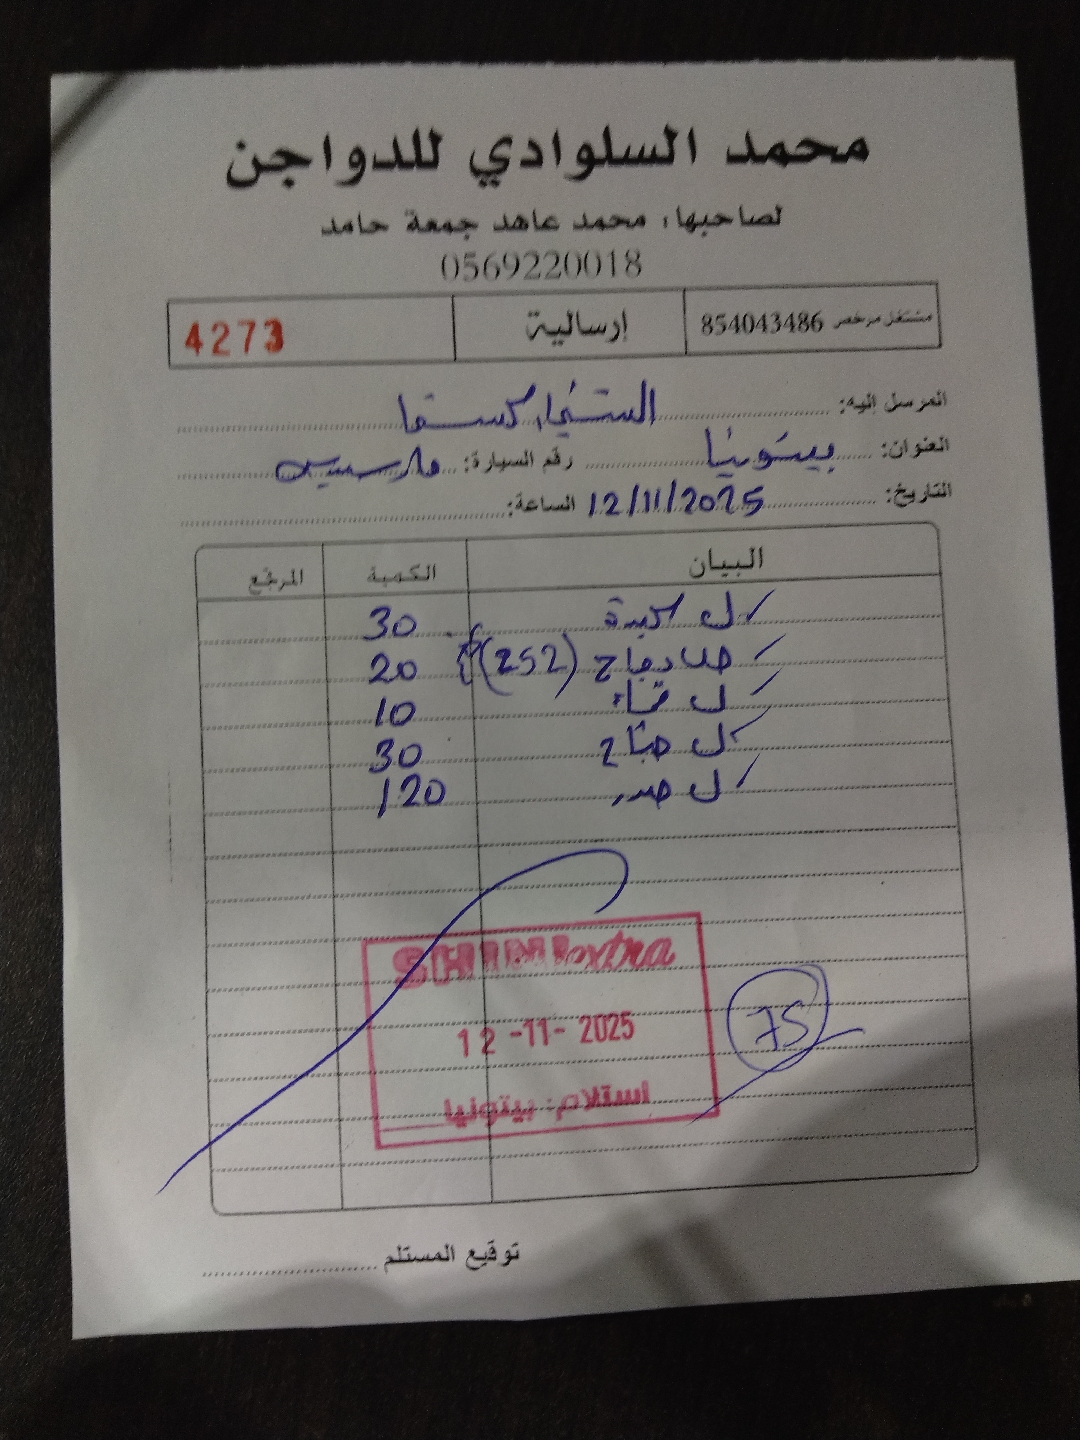 محمد السلوادي للدواجن
لصاحبها: محمد عاهد جمعة حامد
0569220018
مشتغل مرخص 854043486 إرسالية 4273
المرسل إليه:
العنوان: بيتونيا رقم السيارة:
التاريخ: 12/11/2025 الساعة:
البيان الكمية المرتجع
ك كبدة 30
دجاج (252) 20
ك 10
ك جناح 30
ك صدر 120
SHINI extra
12-11-2025
استلام: بيتونيا
توقيع المستلم